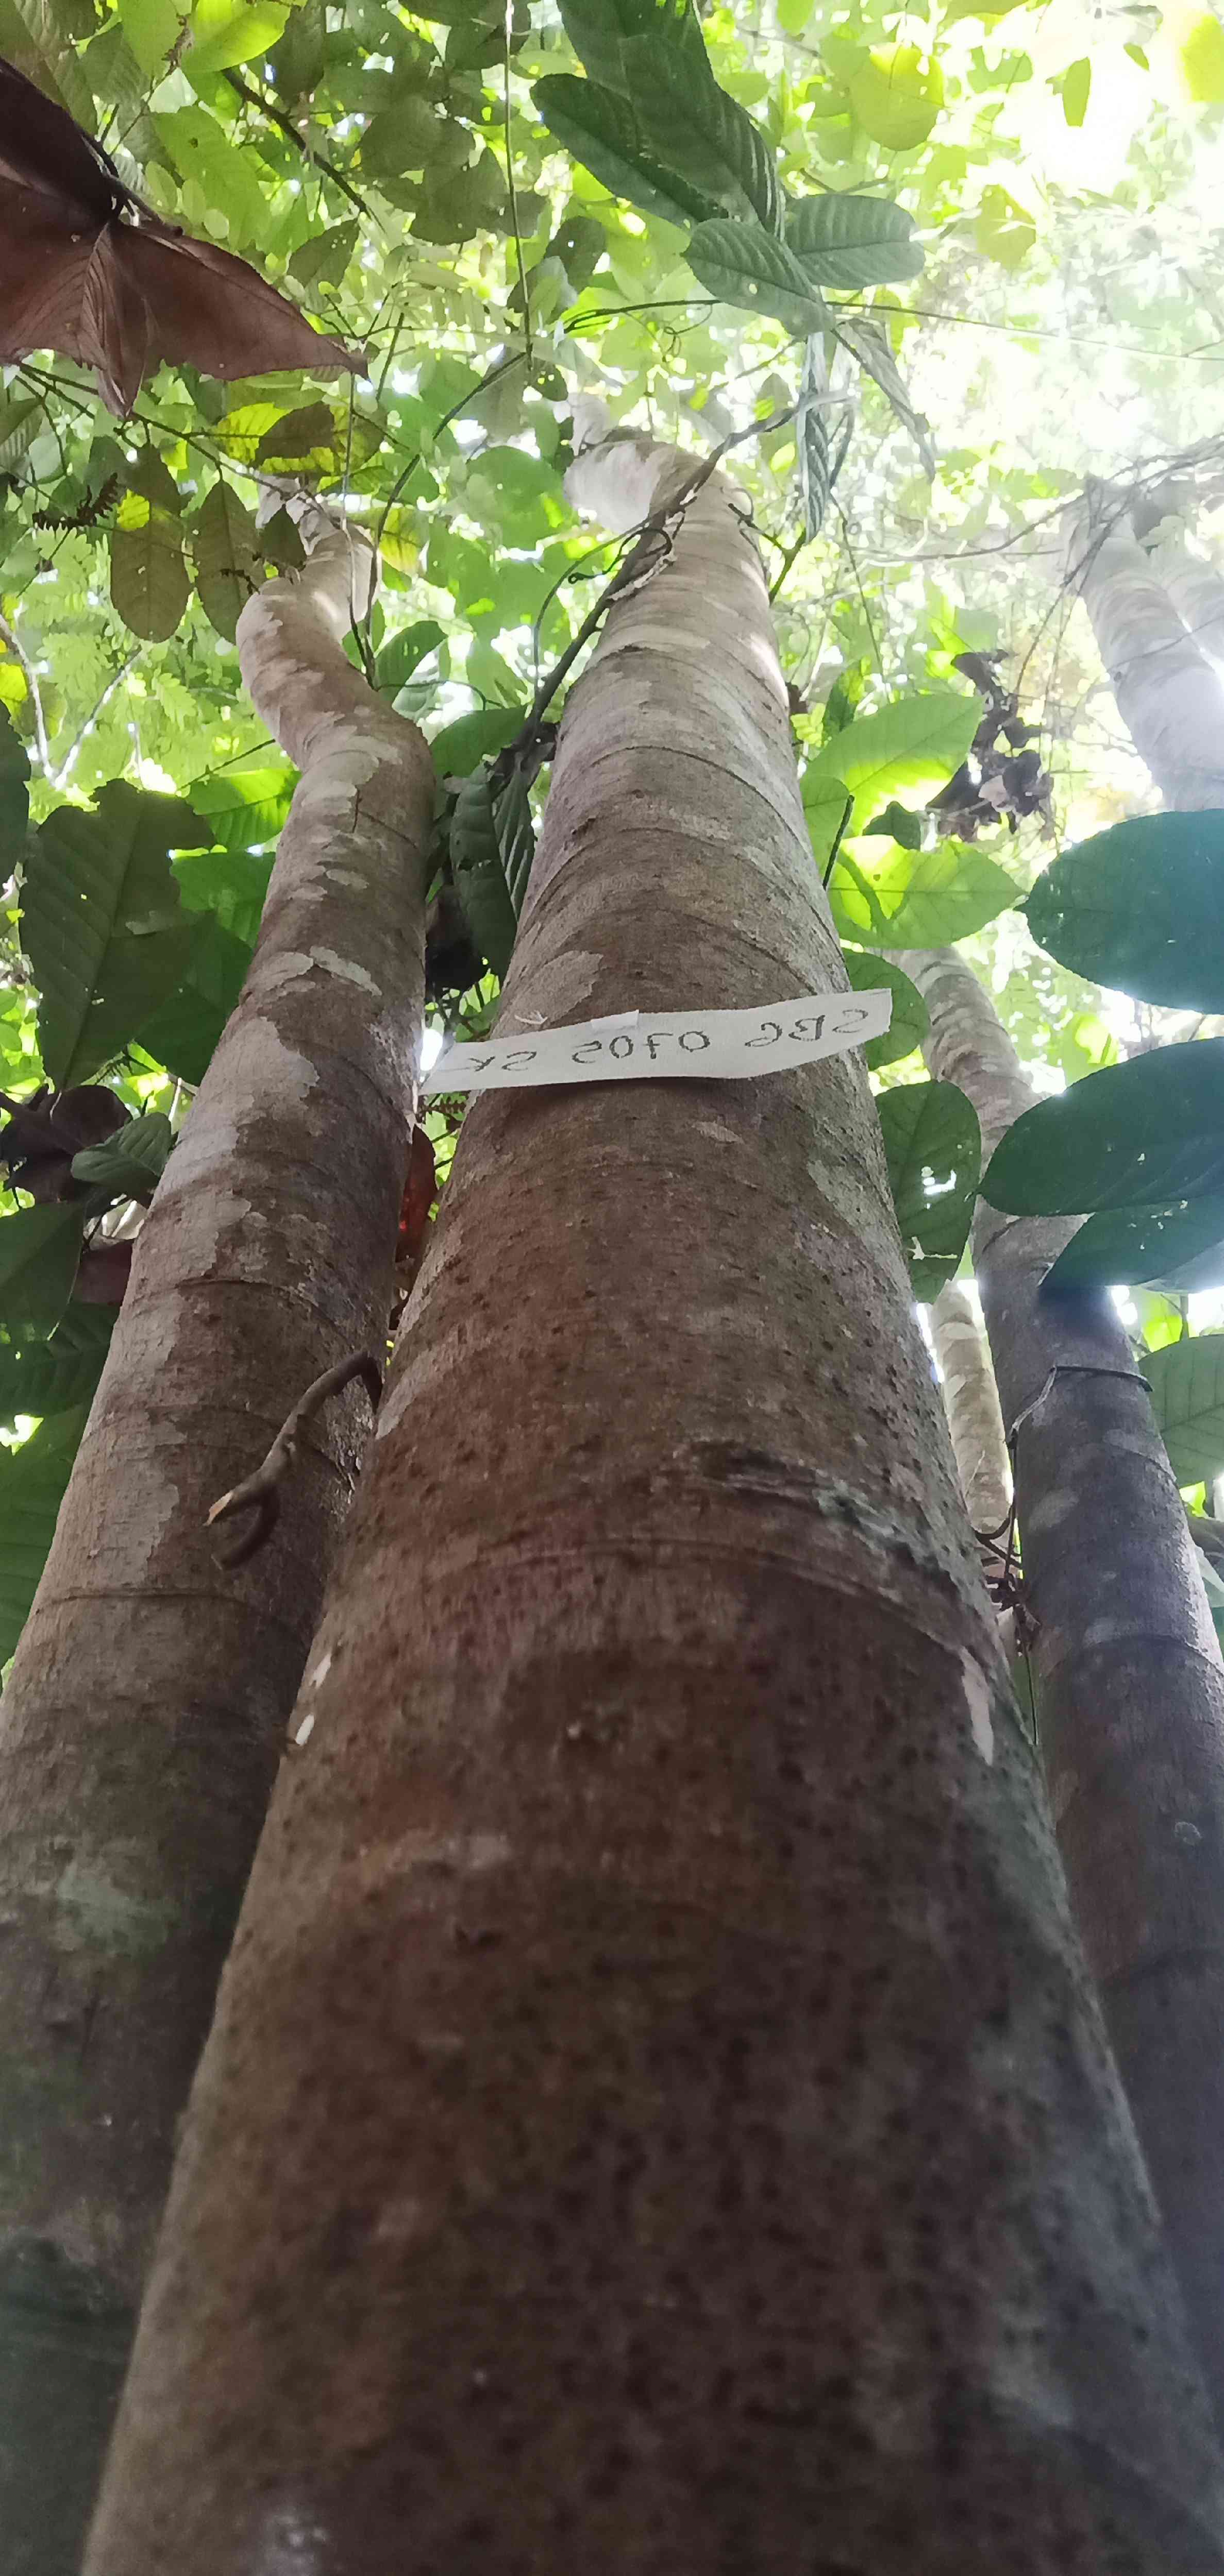 SBG 0705 SK